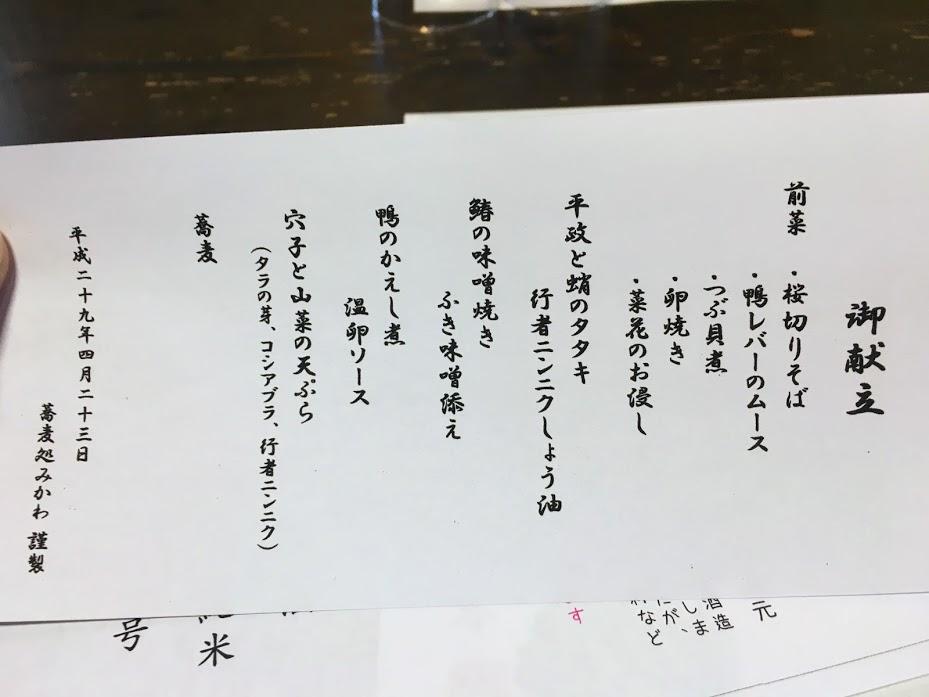 御献立
前菜 ・桜切りそば
・鴨レバーのムース
・つぶ貝煮
・卵焼き
・菜花のお浸し
平政と蛸のタタキ
行者ニンニクしょう油
鰆の味噌焼き
ふき味噌添え
鴨のかえし煮
温卵ソース
穴子と山菜の天ぷら
(タラの芽、コシアブラ、行者ニンニク)
蕎麦
平成二十九年四月二十三日
蕎麦処みかわ 謹製
元
酒造
しま
だが、
など
す
米
号